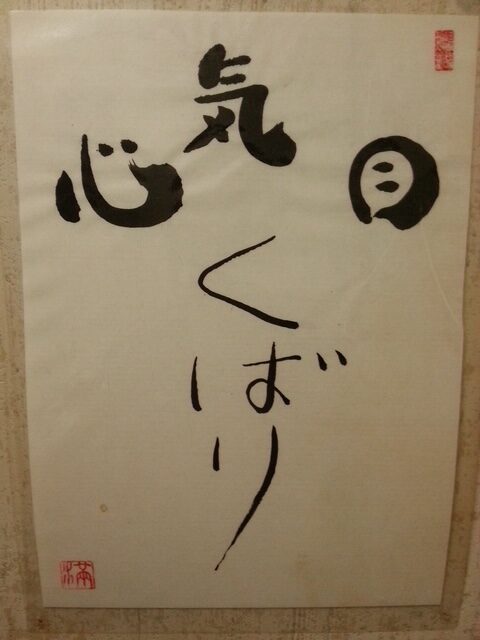 目
気
心
くばり